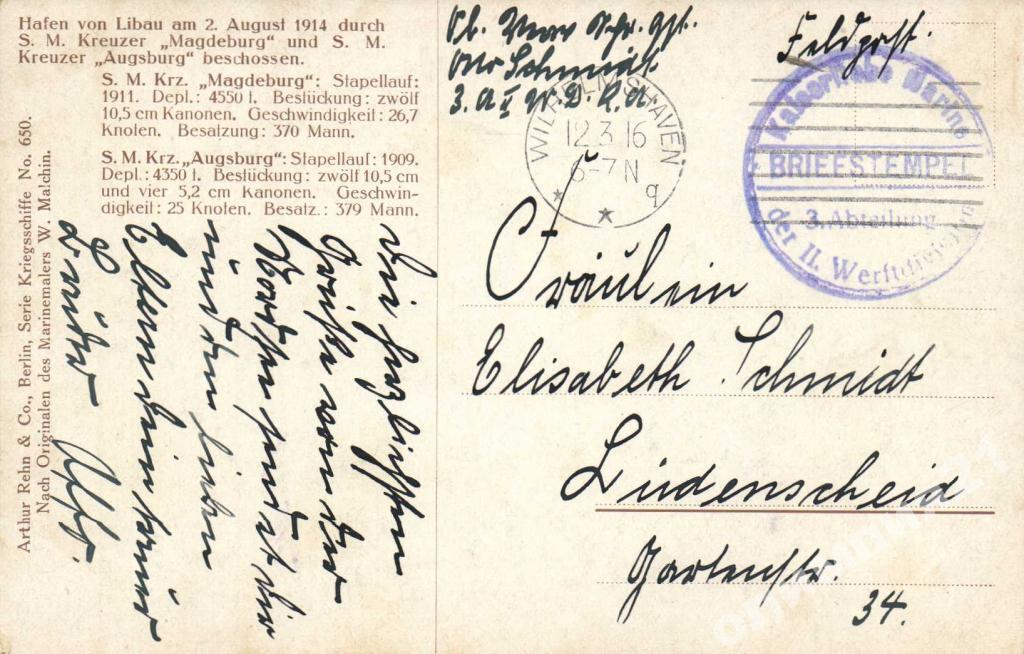 Hafen von Libau am 2. August 1914 durch
S. M. Kreuzer „Magdeburg“ und S. M.
Kreuzer „Augsburg“ beschossen.
S. M. Krz. „Magdeburg“: Stapellauf:
1911. Depl.: 4550 t. Bestückung: zwölf
10,5 cm Kanonen. Geschwindigkeit: 26,7
Knoten. Besatzung: 370 Mann.
S. M. Krz. „Augsburg“: Stapellauf: 1909.
Depl.: 4350 t. Bestückung: zwölf 10,5 cm
und vier 5,2 cm Kanonen. Geschwin-
digkeit: 25 Knoten. Besatz.: 379 Mann.
Arthur Rehn & Co., Berlin, Serie Kriegsschiffe No. 650.
Nach Originalen des Marinemalers W. Malchin.
Die herzlichsten
Grüße von der
Nordsee sendet dir
und den lieben
Eltern dein treuer
Bruder Otto.
Otto Schmidt
3. A II W. D.
Feldpost.
WILHELMSHAVEN
12.3.16
6-7 N
q
Kaiserliche Marine
BRIEFSTEMPEL
3. Abteilung
der II. Werftdivision
Fräulein
Elisabeth Schmidt
Lüdenscheid
Gartenstr.
34.